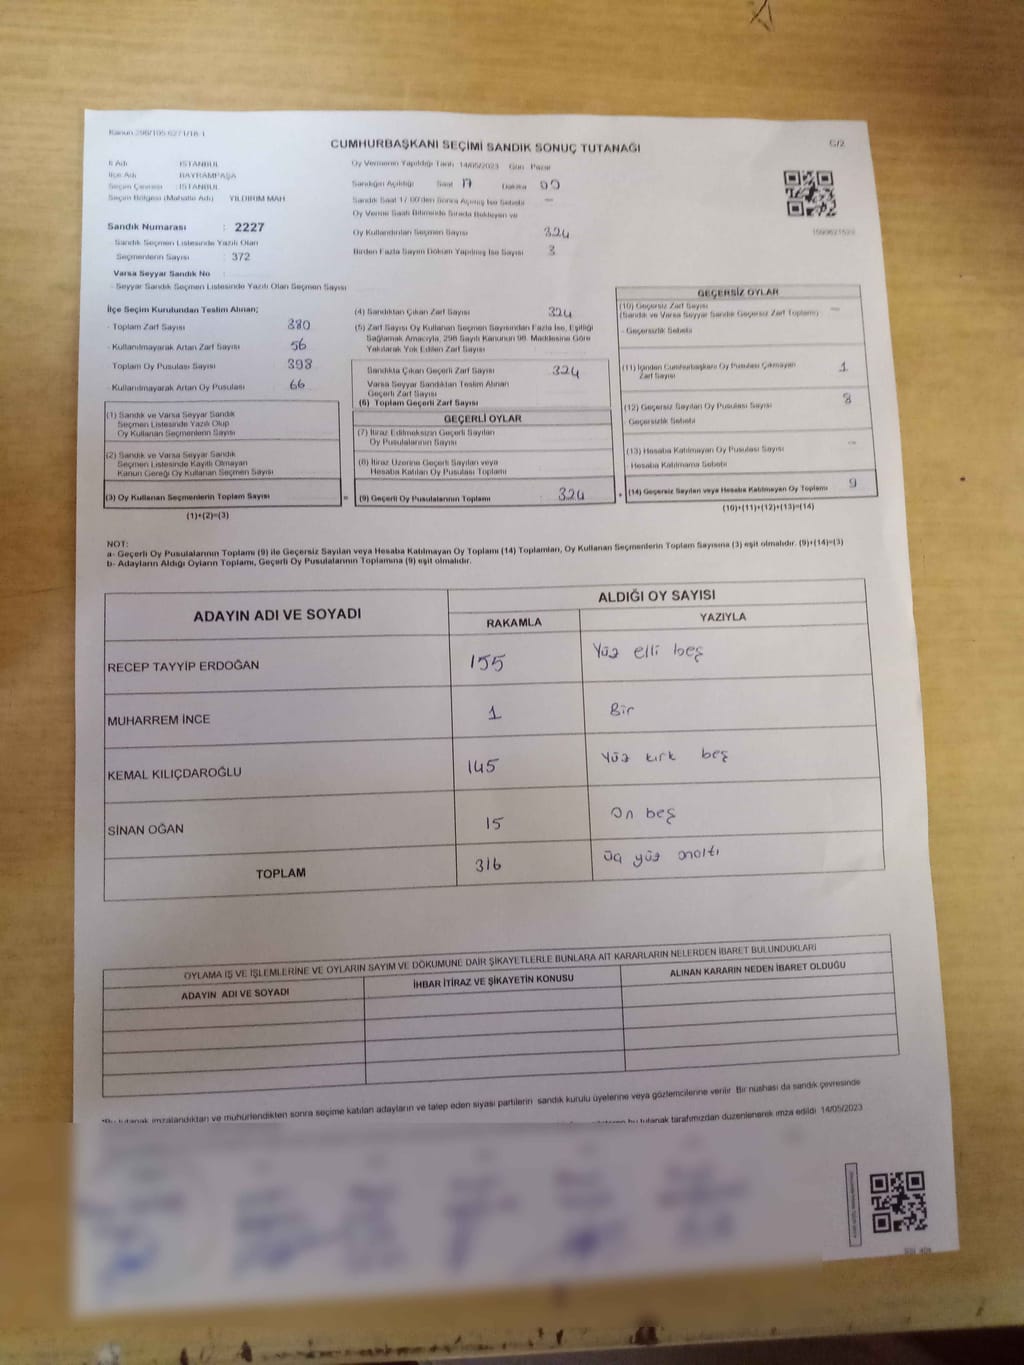 Kanun 298/105 6271/18-1
CUMHURBAŞKANI SEÇİMİ SANDIK SONUÇ TUTANAĞI
İl Adı : İSTANBUL
İlçe Adı : BAYRAMPAŞA
Seçim Çevresi : İSTANBUL
Seçim Bölgesi (Mahalle Adı) YILDIRIM MAH
Sandık Numarası : 2227
Sandık Seçmen Listesinde Yazılı Olan
Seçmenlerin Sayısı : 372
Varsa Seyyar Sandık No
Seyyar Sandık Seçmen Listesinde Yazılı Olan Seçmen Sayısı
Oy Vermenin Yapıldığı Tarih 14/05/2023 Gün Pazar
Sandığın Açıldığı Saat 17 Dakika 00
Sandık Saat 17.00'den Sonra Açılmış İse Sebebi —
Oy Verme Saati Bitiminde Sırada Bekleyen ve
Oy Kullandırılan Seçmen Sayısı 324
Birden Fazla Sayım Döküm Yapılmış İse Sayısı 3
İlçe Seçim Kurulundan Teslim Alınan;
- Toplam Zarf Sayısı 380
- Kullanılmayarak Artan Zarf Sayısı 56
Toplam Oy Pusulası Sayısı 398
- Kullanılmayarak Artan Oy Pusulası 66
(1) Sandık ve Varsa Seyyar Sandık
Seçmen Listesinde Yazılı Olup
Oy Kullanan Seçmenlerin Sayısı
(2) Sandık ve Varsa Seyyar Sandık
Seçmen Listesinde Kayıtlı Olmayan
Kanun Gereği Oy Kullanan Seçmen Sayısı
(3) Oy Kullanan Seçmenlerin Toplam Sayısı
(1)+(2)=(3)
(4) Sandıktan Çıkan Zarf Sayısı 324
(5) Zarf Sayısı Oy Kullanan Seçmen Sayısından Fazla İse, Eşitliği
Sağlamak Amacıyla, 298 Sayılı Kanunun 98. Maddesine Göre
Yakılarak Yok Edilen Zarf Sayısı
Sandıkta Çıkan Geçerli Zarf Sayısı 324
Varsa Seyyar Sandıktan Teslim Alınan
Geçerli Zarf Sayısı
(6) Toplam Geçerli Zarf Sayısı
GEÇERLİ OYLAR
(7) İtiraz Edilmeksizin Geçerli Sayılan
Oy Pusulalarının Sayısı
(8) İtiraz Üzerine Geçerli Sayılan veya
Hesaba Katılan Oy Pusulası Toplamı
= (9) Geçerli Oy Pusulalarının Toplamı : 324
GEÇERSİZ OYLAR
(10) Geçersiz Zarf Sayısı —
(Sandık ve Varsa Seyyar Sandık Geçersiz Zarf Toplamı)
- Geçersizlik Sebebi
(11) İçinden Cumhurbaşkanı Oy Pusulası Çıkmayan 1
Zarf Sayısı
(12) Geçersiz Sayılan Oy Pusulası Sayısı 8
Geçersizlik Sebebi
(13) Hesaba Katılmayan Oy Pusulası Sayısı —
Hesaba Katılmama Sebebi
+ (14) Geçersiz Sayılan veya Hesaba Katılmayan Oy Toplamı 9
(10)+(11)+(12)+(13)=(14)
NOT:
a- Geçerli Oy Pusulalarının Toplamı (9) ile Geçersiz Sayılan veya Hesaba Katılmayan Oy Toplamı (14) Toplamları, Oy Kullanan Seçmenlerin Toplam Sayısına (3) eşit olmalıdır. (9)+(14)=(3)
b- Adayların Aldığı Oyların Toplamı, Geçerli Oy Pusulalarının Toplamına (9) eşit olmalıdır.
ADAYIN ADI VE SOYADI
ALDIĞI OY SAYISI
RAKAMLA YAZIYLA
RECEP TAYYİP ERDOĞAN 155 Yüz elli beş
MUHARREM İNCE 1 Bir
KEMAL KILIÇDAROĞLU 145 Yüz kırk beş
SİNAN OĞAN 15 On beş
TOPLAM 316 üç yüz onaltı
OYLAMA İŞ VE İŞLEMLERİNE VE OYLARIN SAYIM VE DÖKÜMÜNE DAİR ŞİKAYETLERLE BUNLARA AİT KARARLARIN NELERDEN İBARET BULUNDUKLARI
ADAYIN ADI VE SOYADI İHBAR İTİRAZ VE ŞİKAYETİN KONUSU ALINAN KARARIN NEDEN İBARET OLDUĞU
tutanak imzalandıktan ve mühürlendikten sonra seçime katılan adayların ve talep eden siyasi partilerin sandık kurulu üyelerine veya gözlemcilerine verilir Bir nüshası da sandık çevresinde
bu tutanak tarafımızdan düzenlenerek imza edildi 14/05/2023